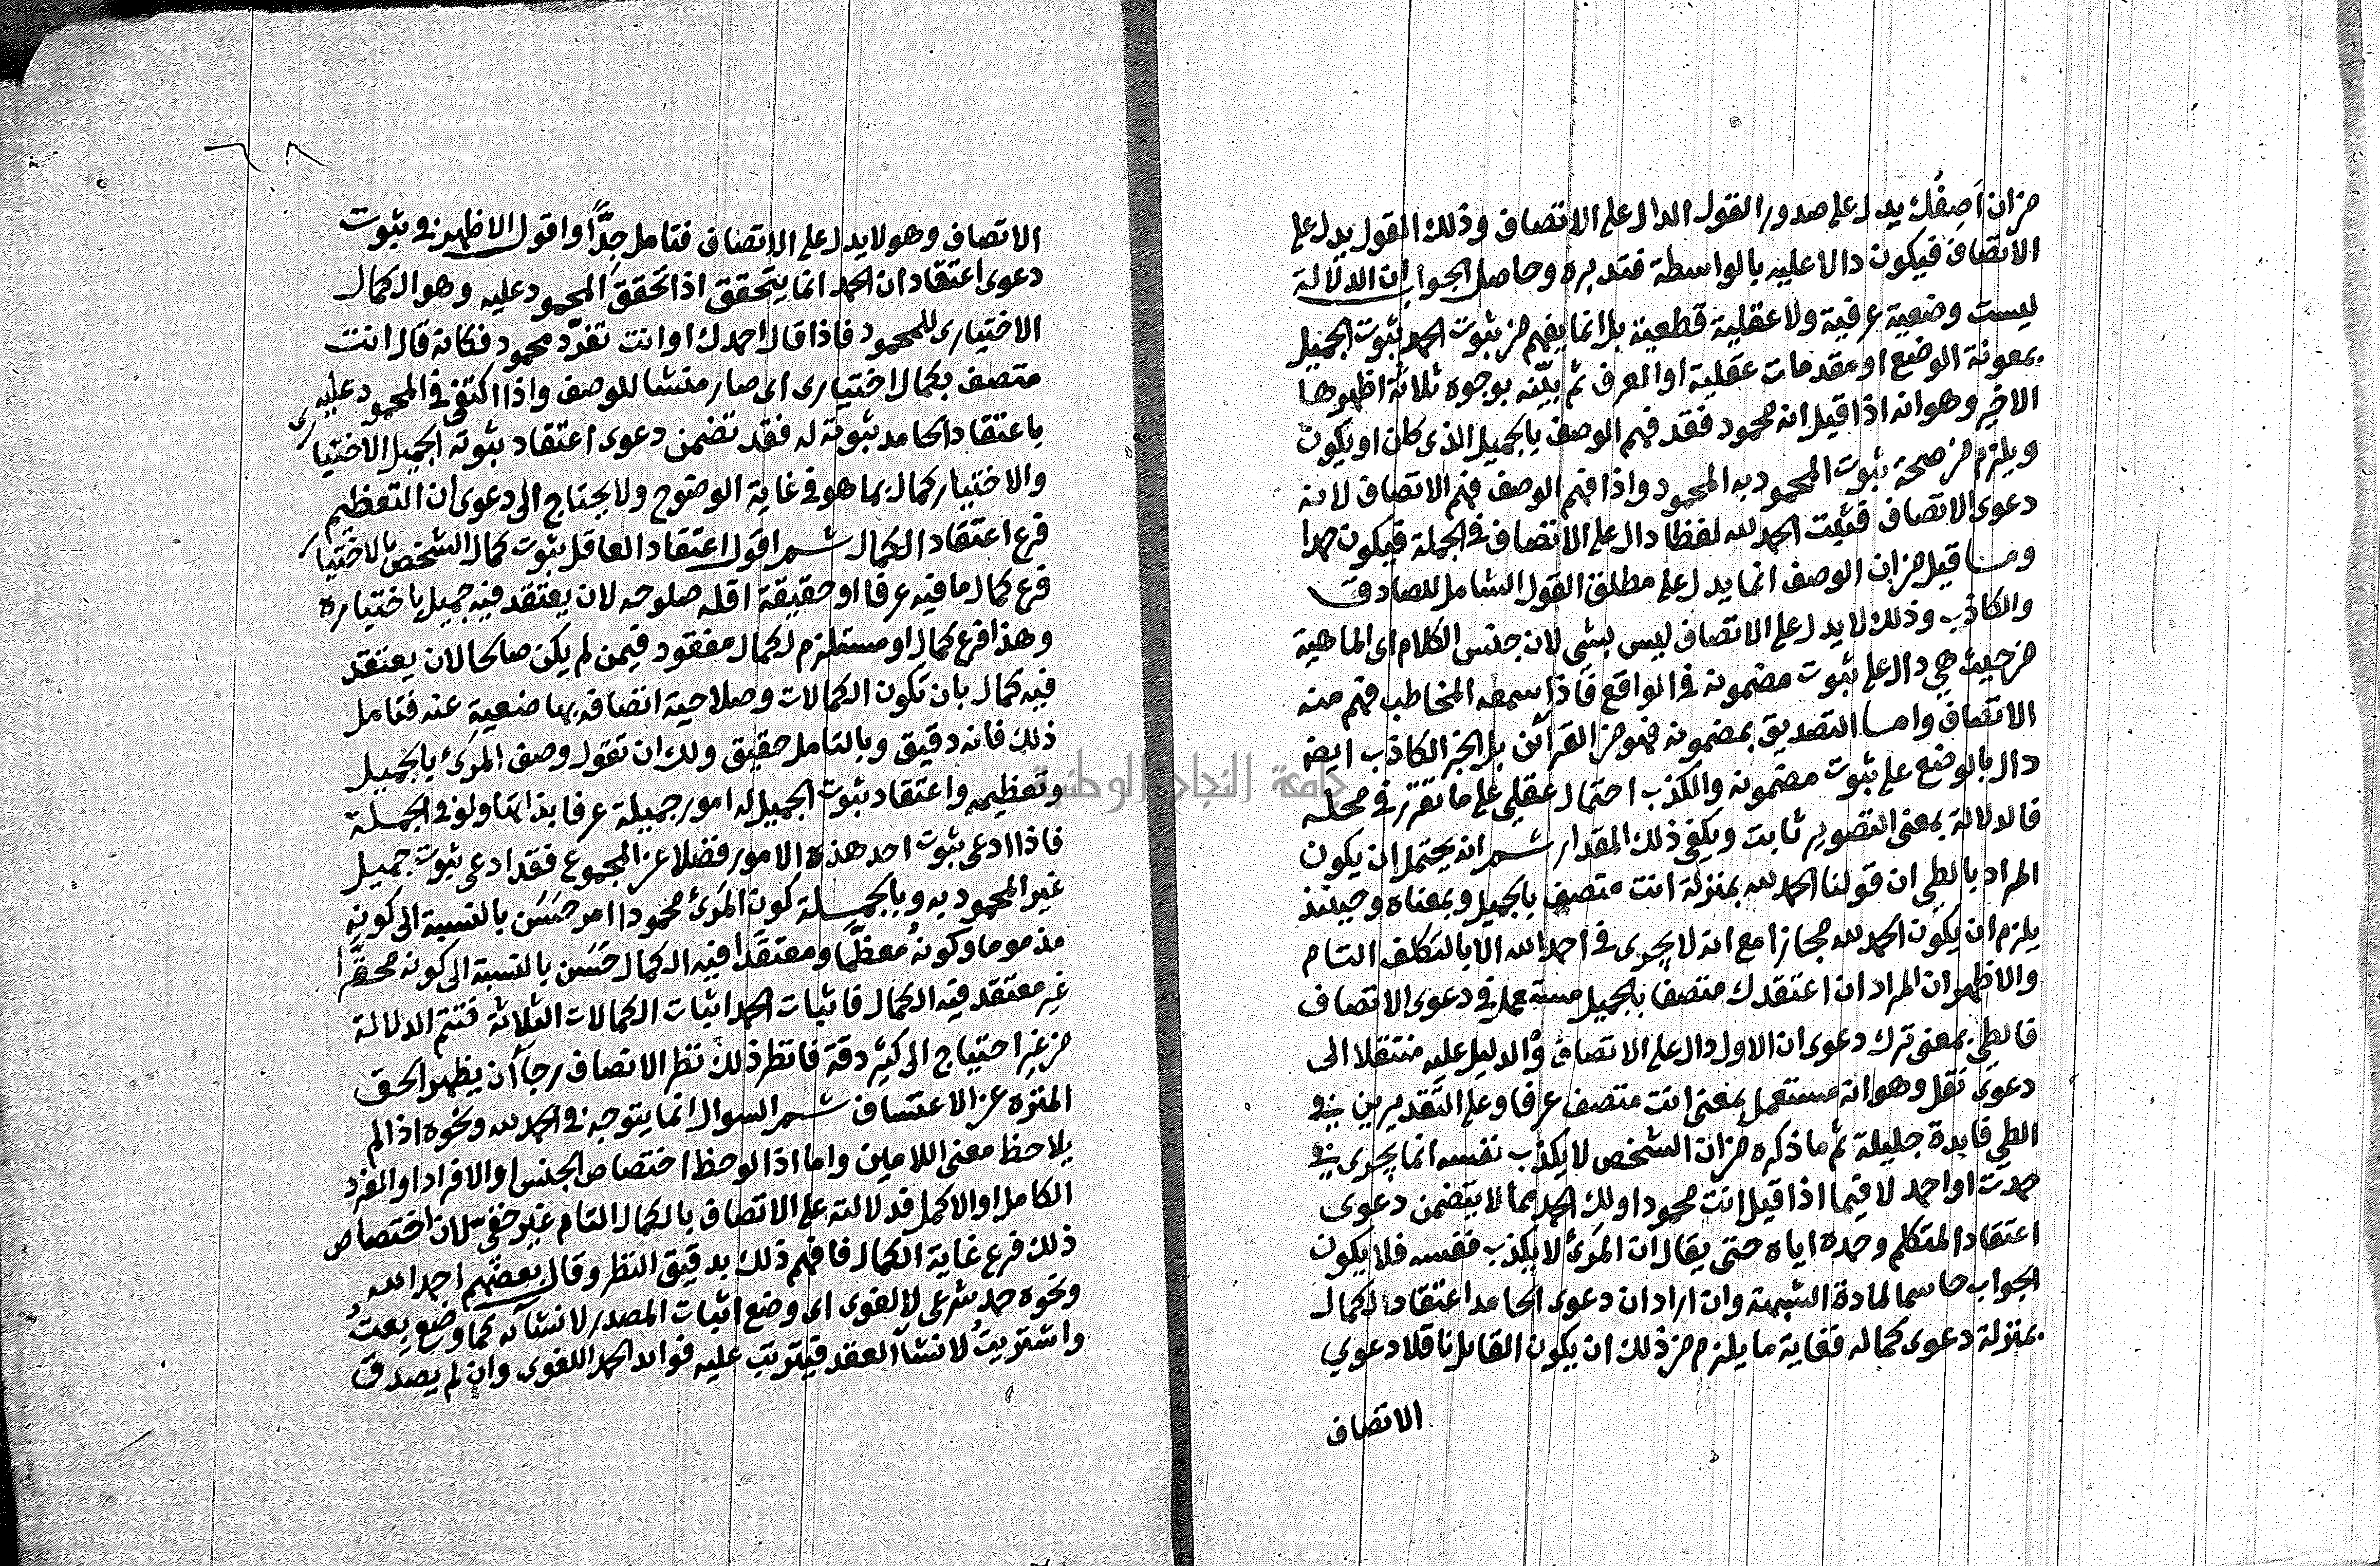 من ان اَصِفُك يدل على صدور القول الدال على الاتصاف وذلك القول يدل على
الاتصاف فيكون دالا عليه بالواسطة فتدبره وحاصل الجواب ان الدلالة
ليست وضعية عرفية ولا عقلية قطعية بل انما يفهم من ثبوت الحمد ثبوت الجميل
بمعونة الوضع او مقدمات عقلية او العرف ثم بيّنه بوجوه ثلاثة اظهرها
الاخير وهو انه اذا قيل انه محمود فقد فهم الوصف بالجميل الذى كان او يكون
ويلزم من صحة ثبوت المحمود به المحمود واذا فهم الوصف فهم الاتصاف لانه
دعوى الاتصاف فثبت الحمد لله لفظا دال على الاتصاف فى الجملة فيكون حمدا
وما قيل من ان الوصف انما يدل على مطلق القول الشامل للصادق
والكاذب وذلك لا يدل على الاتصاف ليس بشى لان جنس الكلام اى الماهية
من حيث هي دال على ثبوت مضمونه فى الواقع فاذا سمعه المخاطب فهم منه
الاتصاف واما التصديق بمضمونه فهو من القرآئن بل الخبر الكاذب ايضه
دال بالوضع على ثبوت مضمونه والكذب احتمال عقلى على ما تقرّر فى محله
فالدلالة بمعنى التصوير ثابت ويكفى ذلك المقدار ثم انه يحتمل ان يكون
المراد بالطى ان قولنا الحمد لله بمنزلة انت متصف بالجميل وبمعناه وحينئذ
يلزم ان يكون الحمد لله مجازا مع انه لا يجرى فى احمد الله الا بالتكلف التام
والاظهر ان المراد ان اعتقدك متصفا بالجميل مستعمل فى دعوى الاتصاف
فالطى بمعنى ترك دعوى ان الاول دال على الاتصاف والدليل عليه منتقلا الى
دعوى نقل وهو انه مستعمل بمعنى انت متصف عرفا وعلى التقديرين فى
الطي فايدة جليلة ثم ما ذكره من ان الشخص لا يكذب نفسه انما يجرى فى
حمدت او احمد لا فيما اذا قيل انت محمود او لك الحمد مما لا يتضمن دعوى
اعتقاد المتكلم وحده اياه حتى يقال ان المَرئ لا يكذب نفسه فلا يكون
الجواب حاسما لمادة الشبهة وان اراد ان دعوى الحامد اعتقاد الكمال
بمنزلة دعوى كماله فغاية ما يلزم من ذلك ان يكون القايل ناقلا دعوي
الاتصاف
٦٨
الاتصاف وهو لا يدل على الاتصاف فتامل جِدًّا واقول الاظهر فى ثبوت
دعوى اعتقاد ان الحمد انما يتحقق اذا تحقق المحمود عليه وهو الكمال
الاختيارى للمحمود فاذا قال احمدك او انت محمود فكانه قال انت
متصف بكمال اختيارى اى صار منشا للوصف واذا اكتفى فى المحمود عليه
باعتقاد الحامد ثبوته له فقد تضمن دعوى اعتقاد ثبوته الجميل الاختيارى
والاختيار كمال بما هو فى غاية الوضوح ولا يحتاج الى دعوى ان التعظيم
فرع اعتقاد الكمال ثم اقول اعتقاد العاقل ثبوت كمال الشخص بالاختيار
فرع كمال ما فيه عرفا او حقيقة اقله صلوحه لان يعتقد فيه جميل باختياره
وهذا فرع كمال او مستلزم لكمال مفقود فيمن لم يكن صالحا لان يعتقد
فيه كمال بان تكون الكمالات وصلاحية اتصافه بها عنه فتامل
ذلك فانه دقيق وبالتامل حقيق ولك ان تقول وصف المرئ بالجميل
وتعظيمه واعتقاد ثبوت الجميل له امور جميلة عرفا بذاتها ولو فى الجملة
فاذا ادعى ثبوت احد هذه الامور فضلا عن المجموع فقد ادعى ثبوت جميل
غير المحمود به وبالجملة كون المَرئ محمودا امر حَسَن بالنسبة الى كونه
مذموما وكونُه معظَّما ومعتقَدا فيه الكمال حَسَن بالنسبة الى كونه محقَّرا
غير معتقد فيه الكمال فاثبات الحمد اثبات الكمالات الثلاثة فتتم الدلالة
من غير احتياج الى كثير دقة فانظر ذلك نظر الانصاف رجآ ان يظهر الحق
المنزه عن الاعتساف ثم السوال انما يتوجه فى الحمد لله ونحوه اذا لم
يلاحظ معنى اللامين واما اذا لوحظ اختصاص الجنس او الافراد او الفرد
الكامل او الاكمل فدلالته على الاتصاف بالكمال التام غير خفىّ لان اختصاص
ذلك فرع غاية الكمال فافهم ذلك بدقيق النظر وقال بعضهم احمد الله
ونحوه حمد شرعى لا لغوى اى وضع اثبات المصدر لانشآئه كما وضع بِعتُ
واشتريتُ لانشآ العقد فيترتب عليه فوائد الحمد اللغوى وان لم يصدق
جامعة النجاح الوطنية